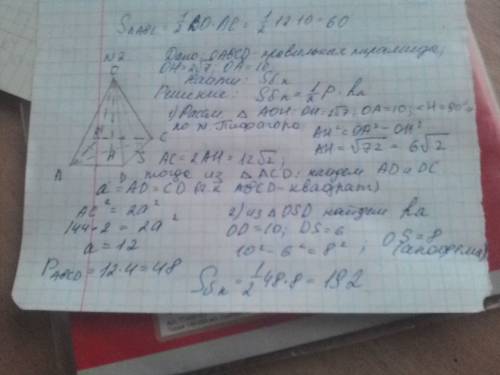 S = 1/2 BD·AC = 1/2 · 12·10 = 60
N2
Дано: OABCD-правильная пирамида,
OH=2√7; OA=10;
Найти: Sбп
Решение: Sбп = 1/2 P · ha
O
A
B
C
D
H
S
1) Рассм. △ AOH: OH=2√7; OA=10; <H=90°
по т. Пифагора: AH² = OA² - OH²
AH = √72 = 6√2
AC = 2AH = 12√2;
тогда из △ ACD: найдем AD и DC
a = AD = CD (т.к. ABCD-квадрат)
AC² = 2a²
144·2 = 2a²
a = 12
P ABCD = 12·4 = 48
2) из △ OSD найдем ha
OD=10; DS=6
10² - 6² = 8²; OS=8
(апофема)
Sбп = 1/2 48·8 = 192